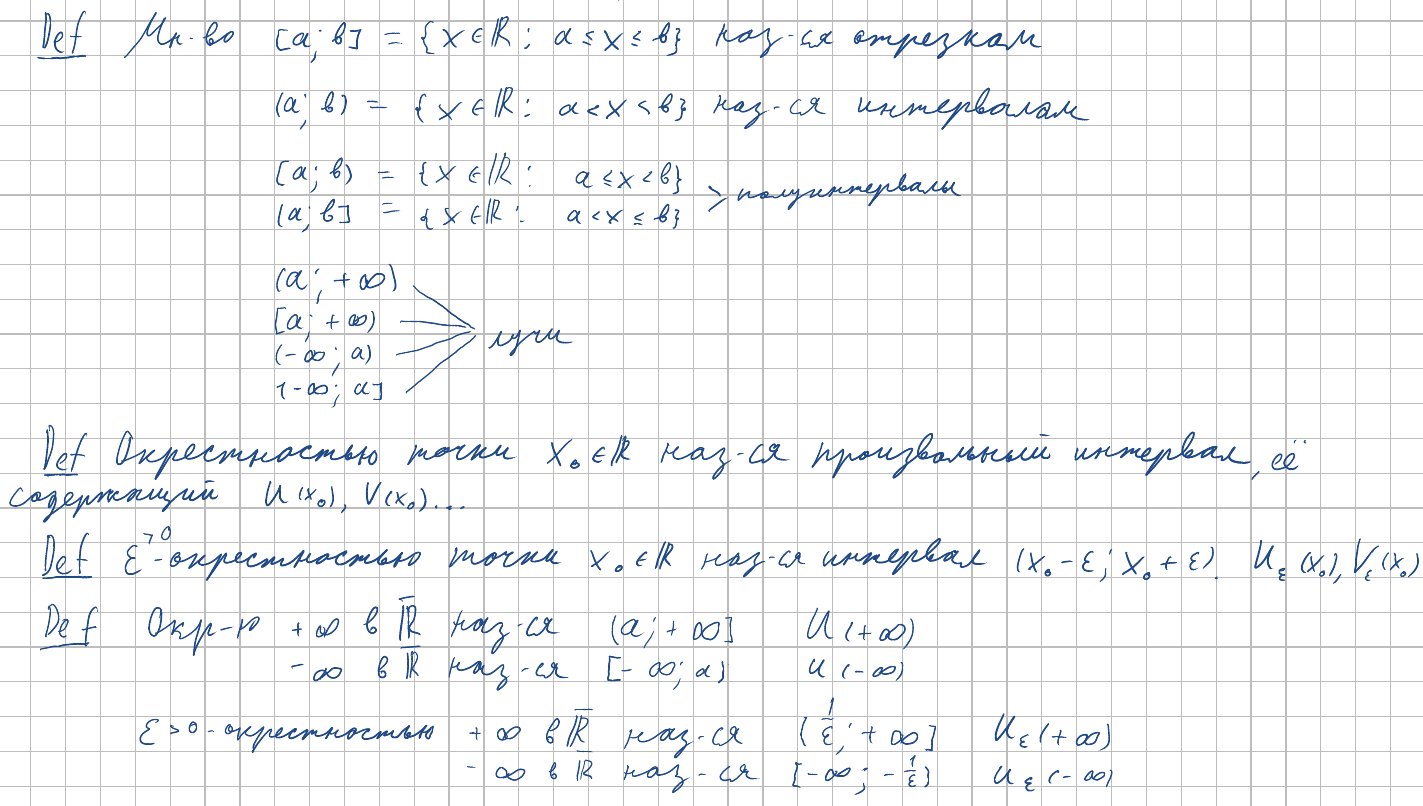 Def Мн-во [a; b] = {x ∈ ℝ : a ≤ x ≤ b} наз-ся отрезком
(a; b) = {x ∈ ℝ : a < x < b} наз-ся интервалом
[a; b) = {x ∈ ℝ : a ≤ x < b}
> полуинтервалы
(a; b] = {x ∈ ℝ : a < x ≤ b}
(a; +∞)
[a; +∞)
лучи
(-∞; a)
(-∞; a]
Def Окрестностью точки x₀ ∈ ℝ наз-ся произвольный интервал, её
содержащий U(x₀), V(x₀)...
Def ε>0-окрестностью точки x₀ ∈ ℝ наз-ся интервал (x₀ - ε; x₀ + ε). U_ε(x₀), V_ε(x₀)
Def Окр-ю +∞ в ℝ̅ наз-ся (a; +∞] U(+∞)
-∞ в ℝ̅ наз-ся [-∞; a) U(-∞)
ε>0-окрестностью +∞ в ℝ̅ наз-ся (1/ε; +∞] U_ε(+∞)
-∞ в ℝ̅ наз-ся [-∞; -1/ε) U_ε(-∞)